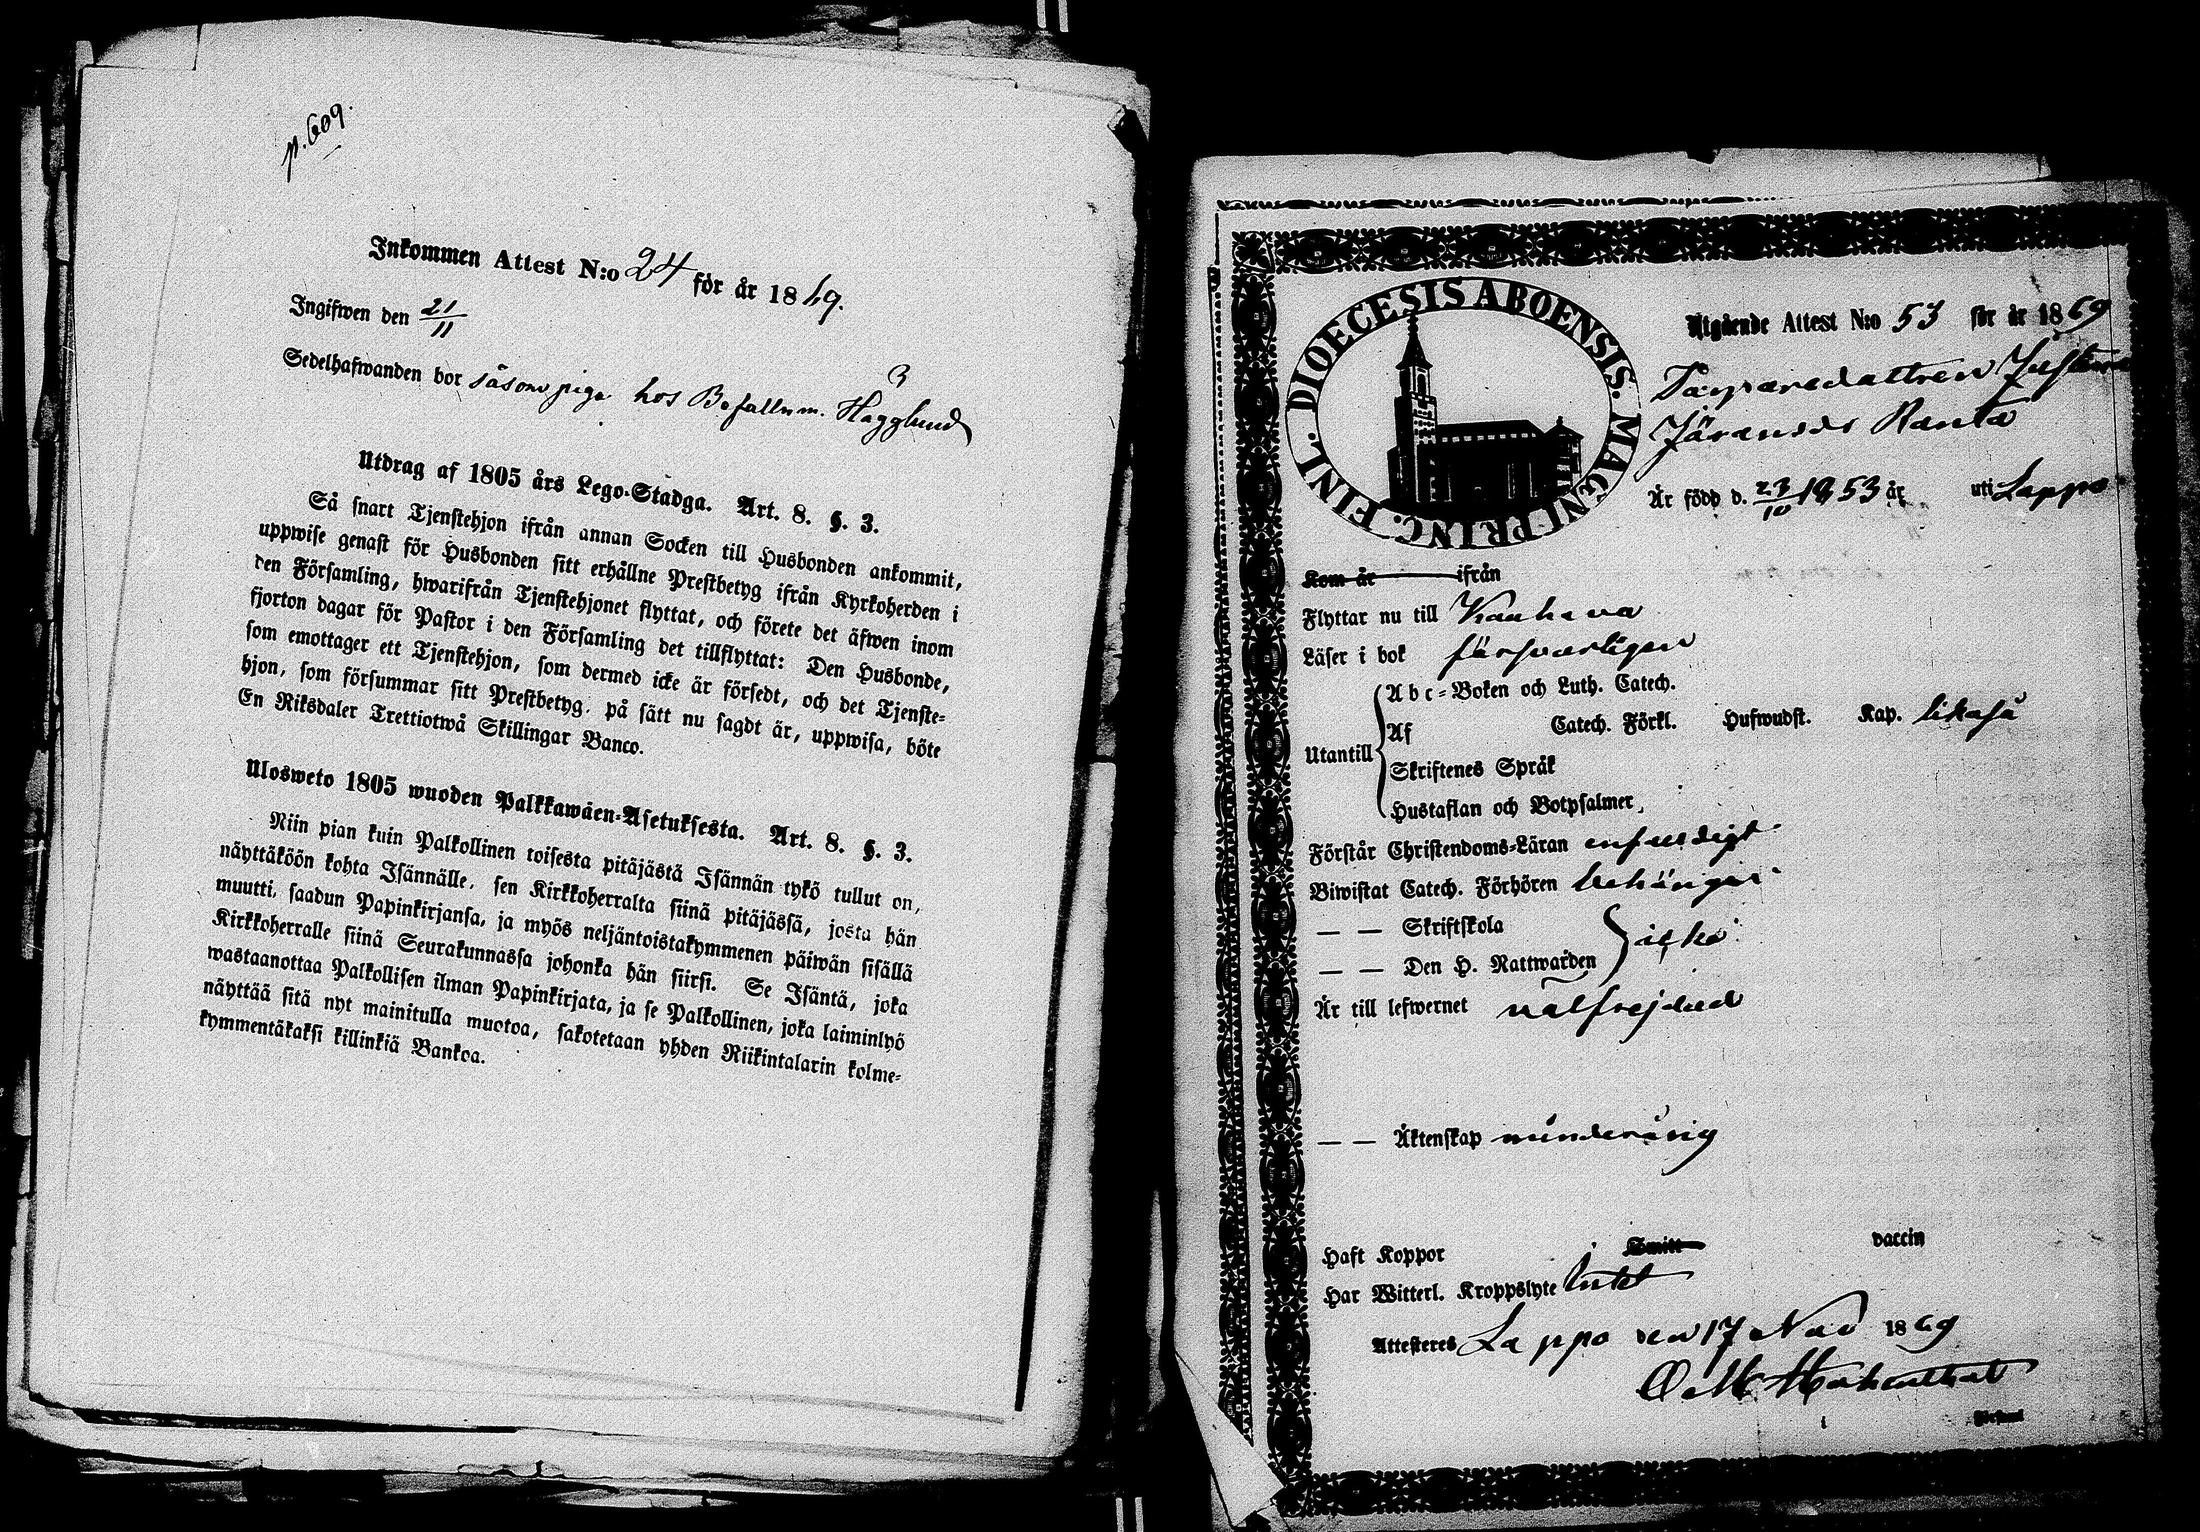 p. 609.
Inkommen Attest N:o 24 för år 1869.
Ingifwen den 21/11
Sedelhafwanden bor såsom piga hos Befallnm. Hägglund
Utdrag af 1805 års Lego-Stadga. Art. 8. §. 3.
Så snart Tjenstehjon ifrån annan Socken till Husbonden ankommit,
uppwise genast för Husbonden sitt erhållne Prestbetyg ifrån Kyrkoherden i
den Församling, hwarifrån Tjenstehjonet flyttat, och förete det äfwen inom
fjorton dagar för Pastor i den Församling det tillflyttat: Den Husbonde,
som emottager ett Tjenstehjon, som dermed icke är försedt, och det Tjenste-
hjon, som försummar sitt Prestbetyg, på sätt nu sagdt är, uppwisa, böte
En Riksdaler Trettiotwå Skillingar Banco.
Ulosweto 1805 wuoden Palkkawäen-Asetuksesta. Art. 8. §. 3.
Niin pian kuin Palkollinen toisesta pitäjästä Isännän tykö tullut on,
näyttäköön kohta Isännälle, sen Kirkkoherralta siinä pitäjässä, josta hän
muutti, saadun Papinkirjansa, ja myös neljäntoistakymmenen päiwän sisällä
Kirkkoherralle siinä Seurakunnassa johonka hän siirsi. Se Isäntä, joka
wastaanottaa Palkollisen ilman Papinkirjata, ja se Palkollinen, joka laiminlyö
näyttää sitä nyt mainitulla muotoa, sakotetaan yhden Riikintalarin kolme-
kymmentäkaksi killinkiä Bankoa.
DIOECESIS ABOENSIS. MAGNI PRINC. FINL.
Utgående Attest N:o 53 för år 1869
Ranta
Är född d. 23/10 1853 år uti Lappo
Kom år ifrån
Flyttar nu till Kauhava
Läser i bok försvarligen
Abc-Boken och Luth. Catech.
Utantill Af Catech. Förkl. Hufwudst. Kap. likaså
Skriftenes Språk
Hustaflan och Botpsalmer,
Förstår Christendoms-Läran enfaldigt
Biwistat Catech. Förhören behörigen
— — Skriftskola
— — Den H. Nattwarden
Är till lefwernet välfrejdad
— — Äktenskap minderårig
Haft Koppor Smitt vaccin
Har Witterl. Kroppslyte Intet
Attesteres Lappo den 17 Nov 1869